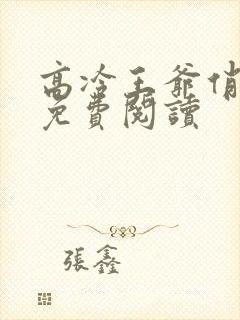 高冷王爺俏
免費閱讀
張鑫